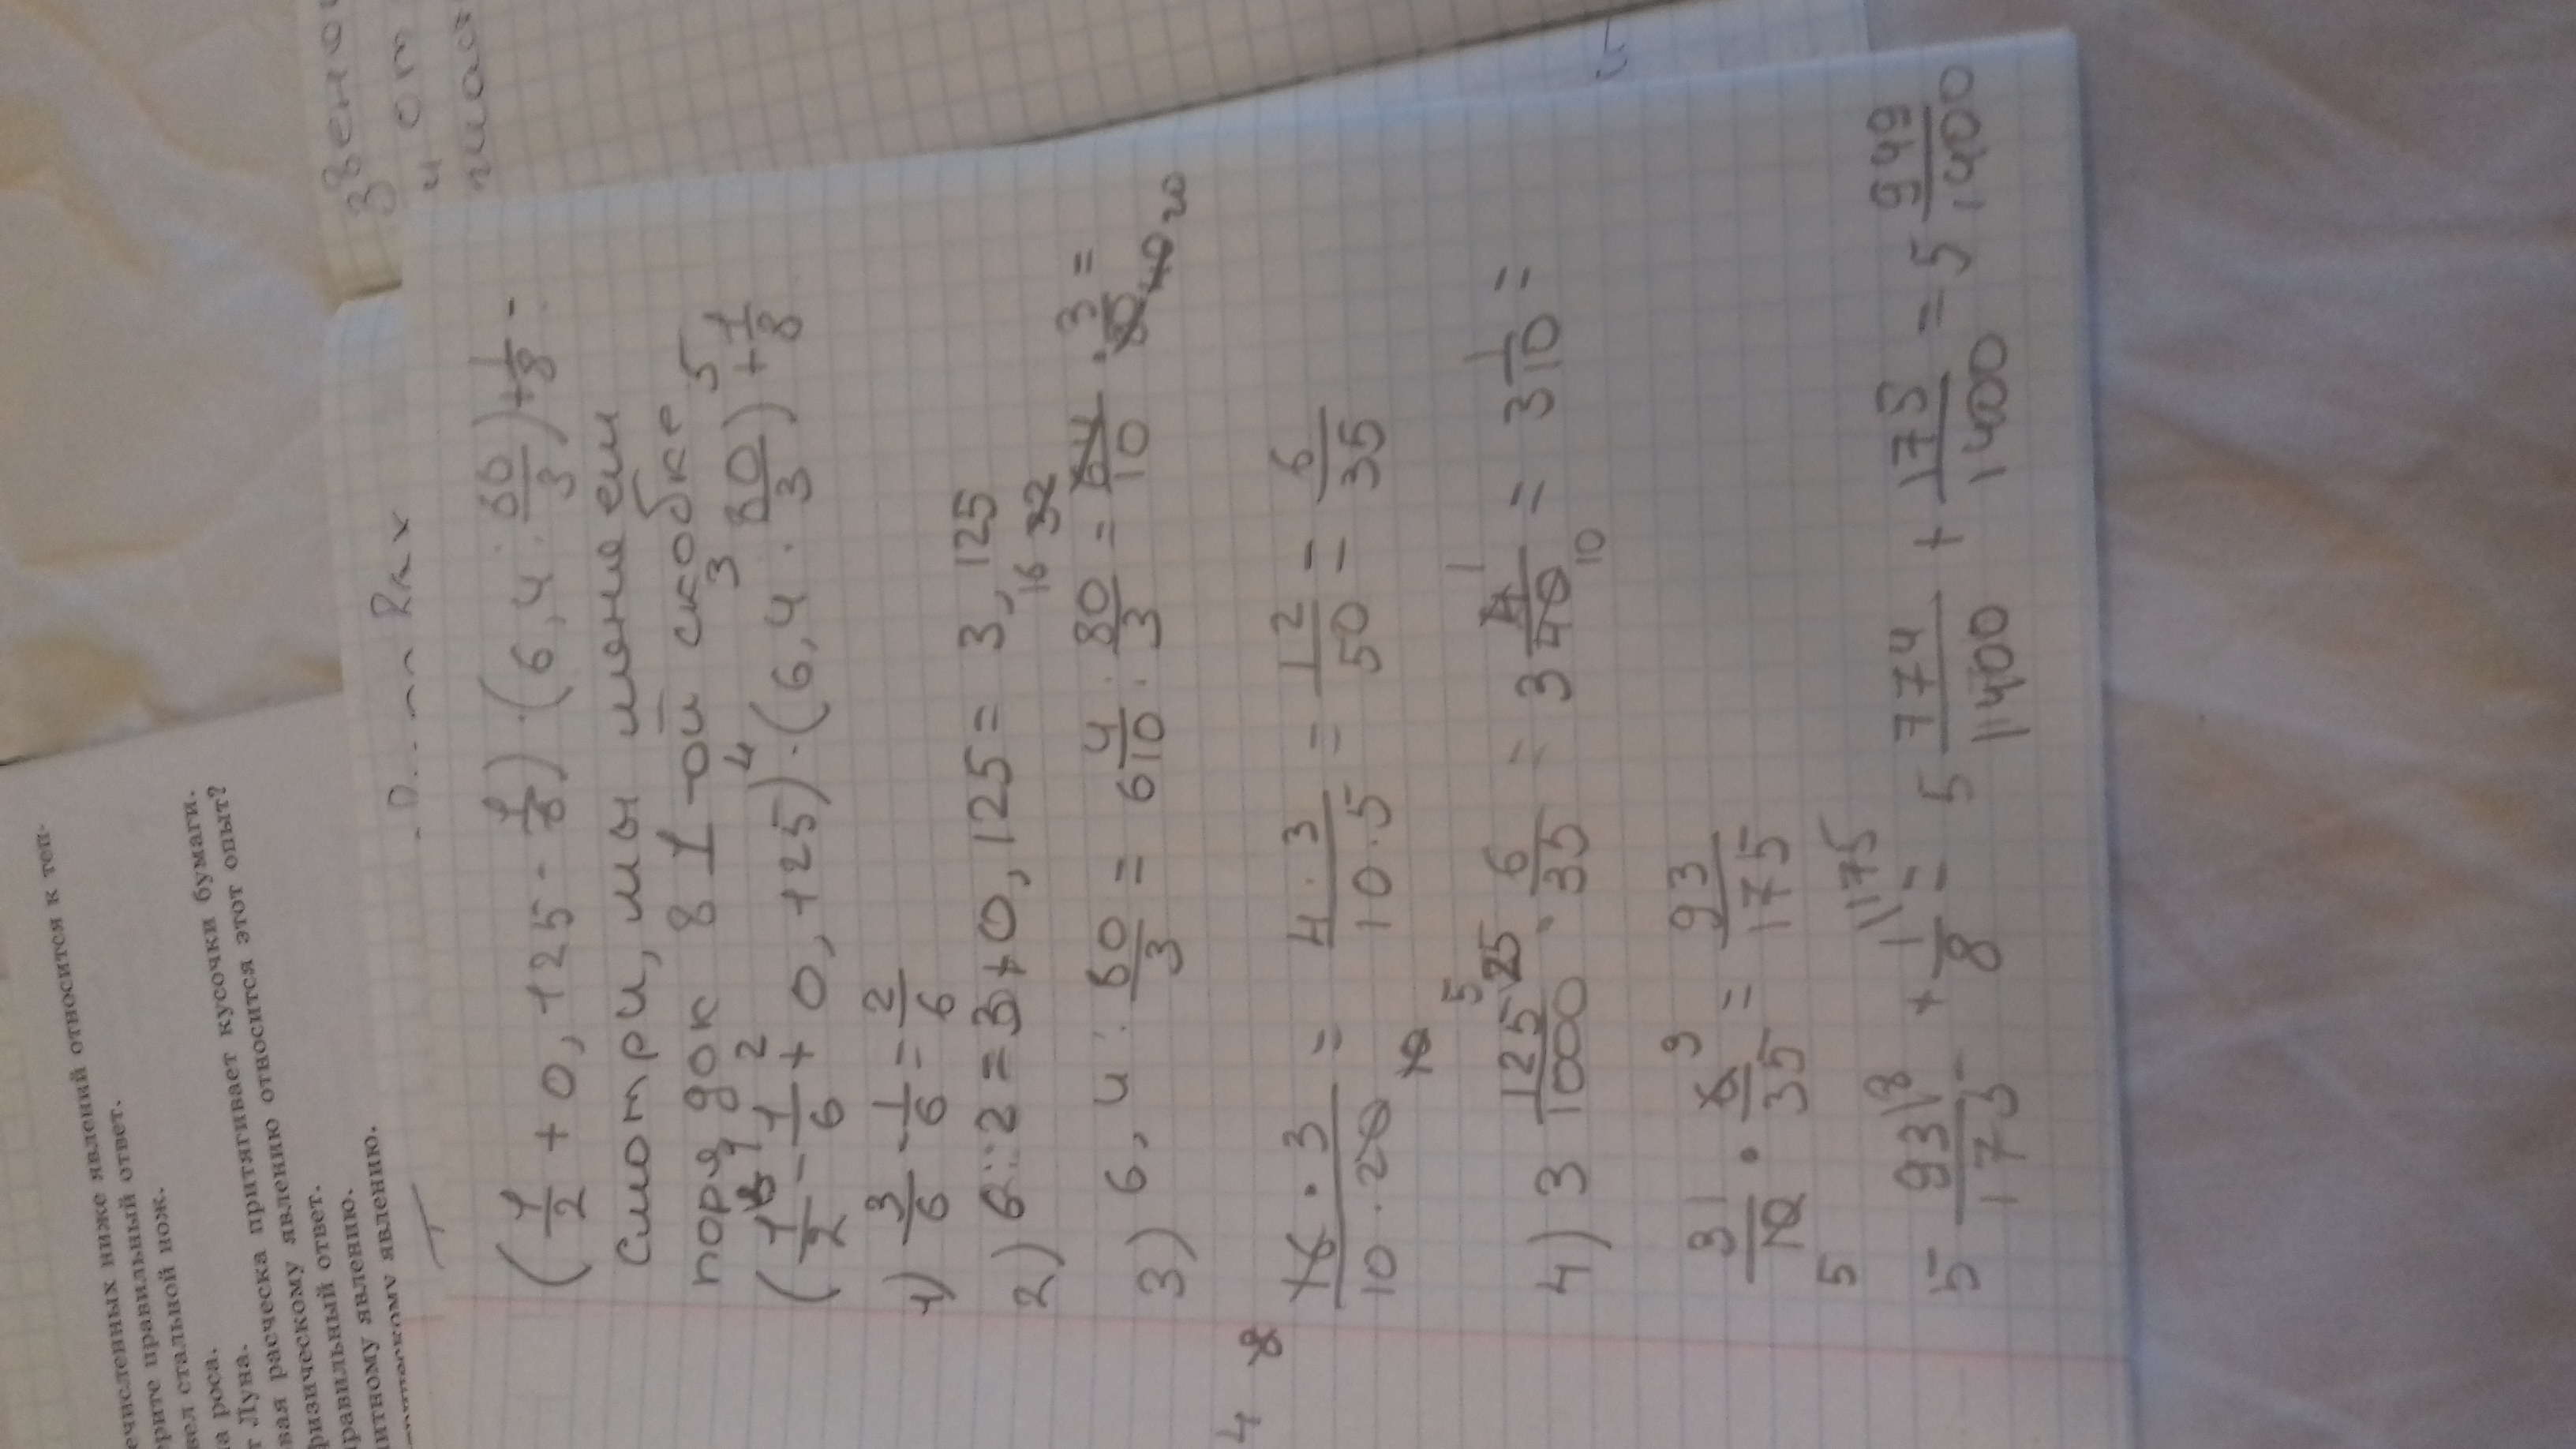 звено
и от
ечисленных ниже явлений относится к теп-
ерите правильный ответ.
вел стальной нож.
а роса.
т Луна.
вая расческа притягивает кусочки бумаги.
физическому явлению относится этот опыт?
правильный ответ.
итному явлению.
явлению.
(1/2 + 0,125 - 1/6) · (6,4 : 80/3) + 1/8 .
смотри, мы меняем
порядок в 1-ой скобке
(1/2 - 1/6 + 0,125) · (6,4 : 80/3) + 1/8
1) 3/6 - 1/6 = 2/6
2) 6 : 2 = 3 + 0,125 = 3,125
3) 6,4 : 80/3 = 6 4/10 : 80/3 = 64/10 · 3/80 =
16 · 3 / 10 · 20 = 4 · 3 / 10 · 5 = 12/50 = 6/35
4) 3 125/1000 · 6/35 = 3 4/40 = 3 1/10 =
31/10 · 6/35 = 93/175
5 93/175 + 1/8 = 5 774/1400 + 175/1400 = 5 949/1400